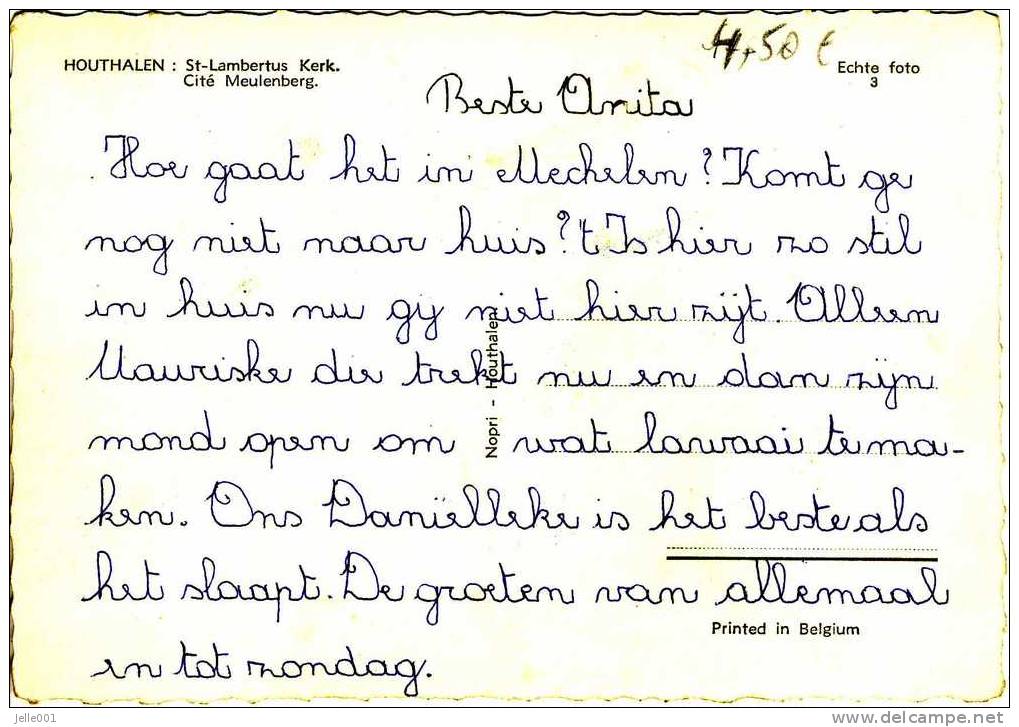 4,50 €
HOUTHALEN : St-Lambertus Kerk.
Cité Meulenberg.
Echte foto
3
Beste Anita
Hoe gaat het in Mechelen? Komt ge
nog niet naar huis? 't Is hier zo stil
in huis nu gij niet hier zijt. Alleen
Mauriske die trekt nu en dan zijn
mond open om wat lawaai te ma-
ken. Ons Daniëlleke is het beste als
het slaapt. De groeten van allemaal
en tot zondag.
Nopri - Houthalen
Printed in Belgium
jelle001
www.delcampe.net